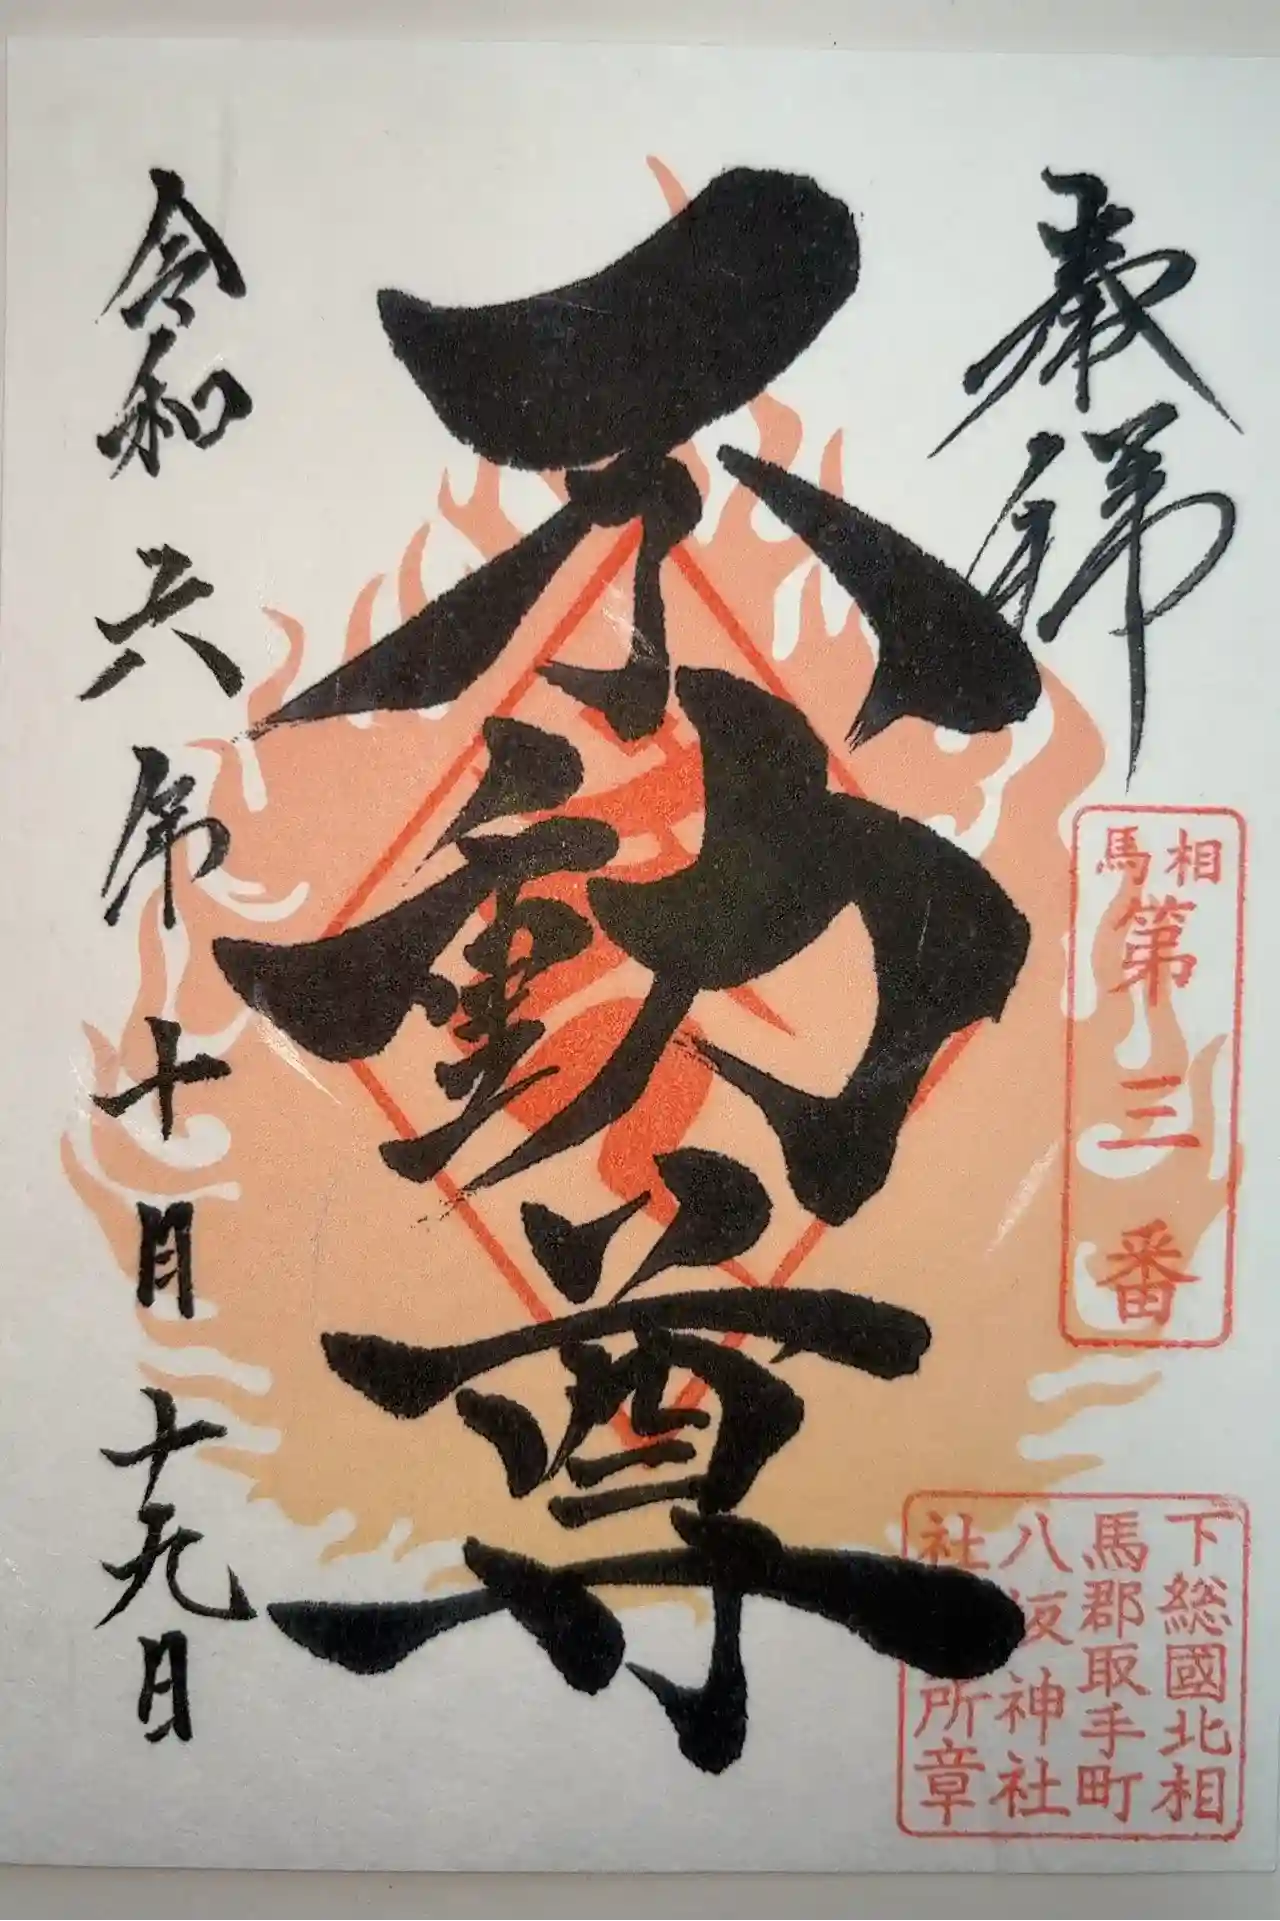 奉拝
相馬
第三番
下総國北相
馬郡取手町
八坂神社
社 所章
不動尊
令和六年十月十九日